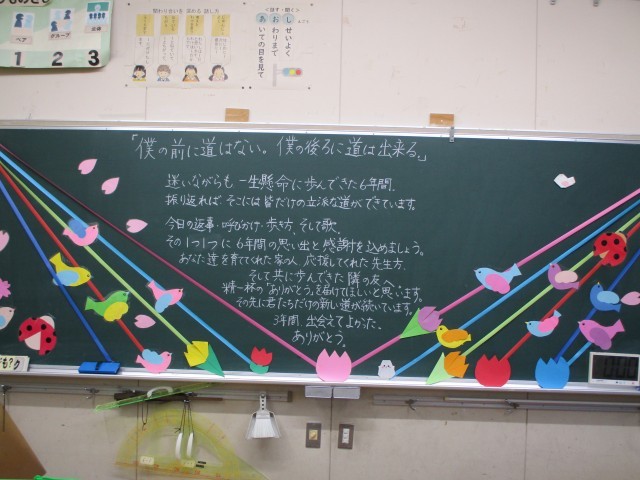 ペア
グループ
1 2 3
話す・聞く
しせいよく
おわりまで
あいての目を見て
「僕の前に道はない。僕の後ろに道は出来る。」
迷いながらも一生懸命に歩んできた6年間。
振り返れば そこには皆だけの立派な道ができています。
今日の返事・呼びかけ・歩き方、そして歌。
その1つ1つに6年間の思い出と感謝を込めましょう。
あなた達を育ててくれた家の人、応援してくれた先生方、
そして共に歩んできた隣の友へ
精一杯の「ありがとう」を届けてほしいと思います。
その先に君たちだけの新しい道が続いています。
3年間、出会えてよかった。
ありがとう。